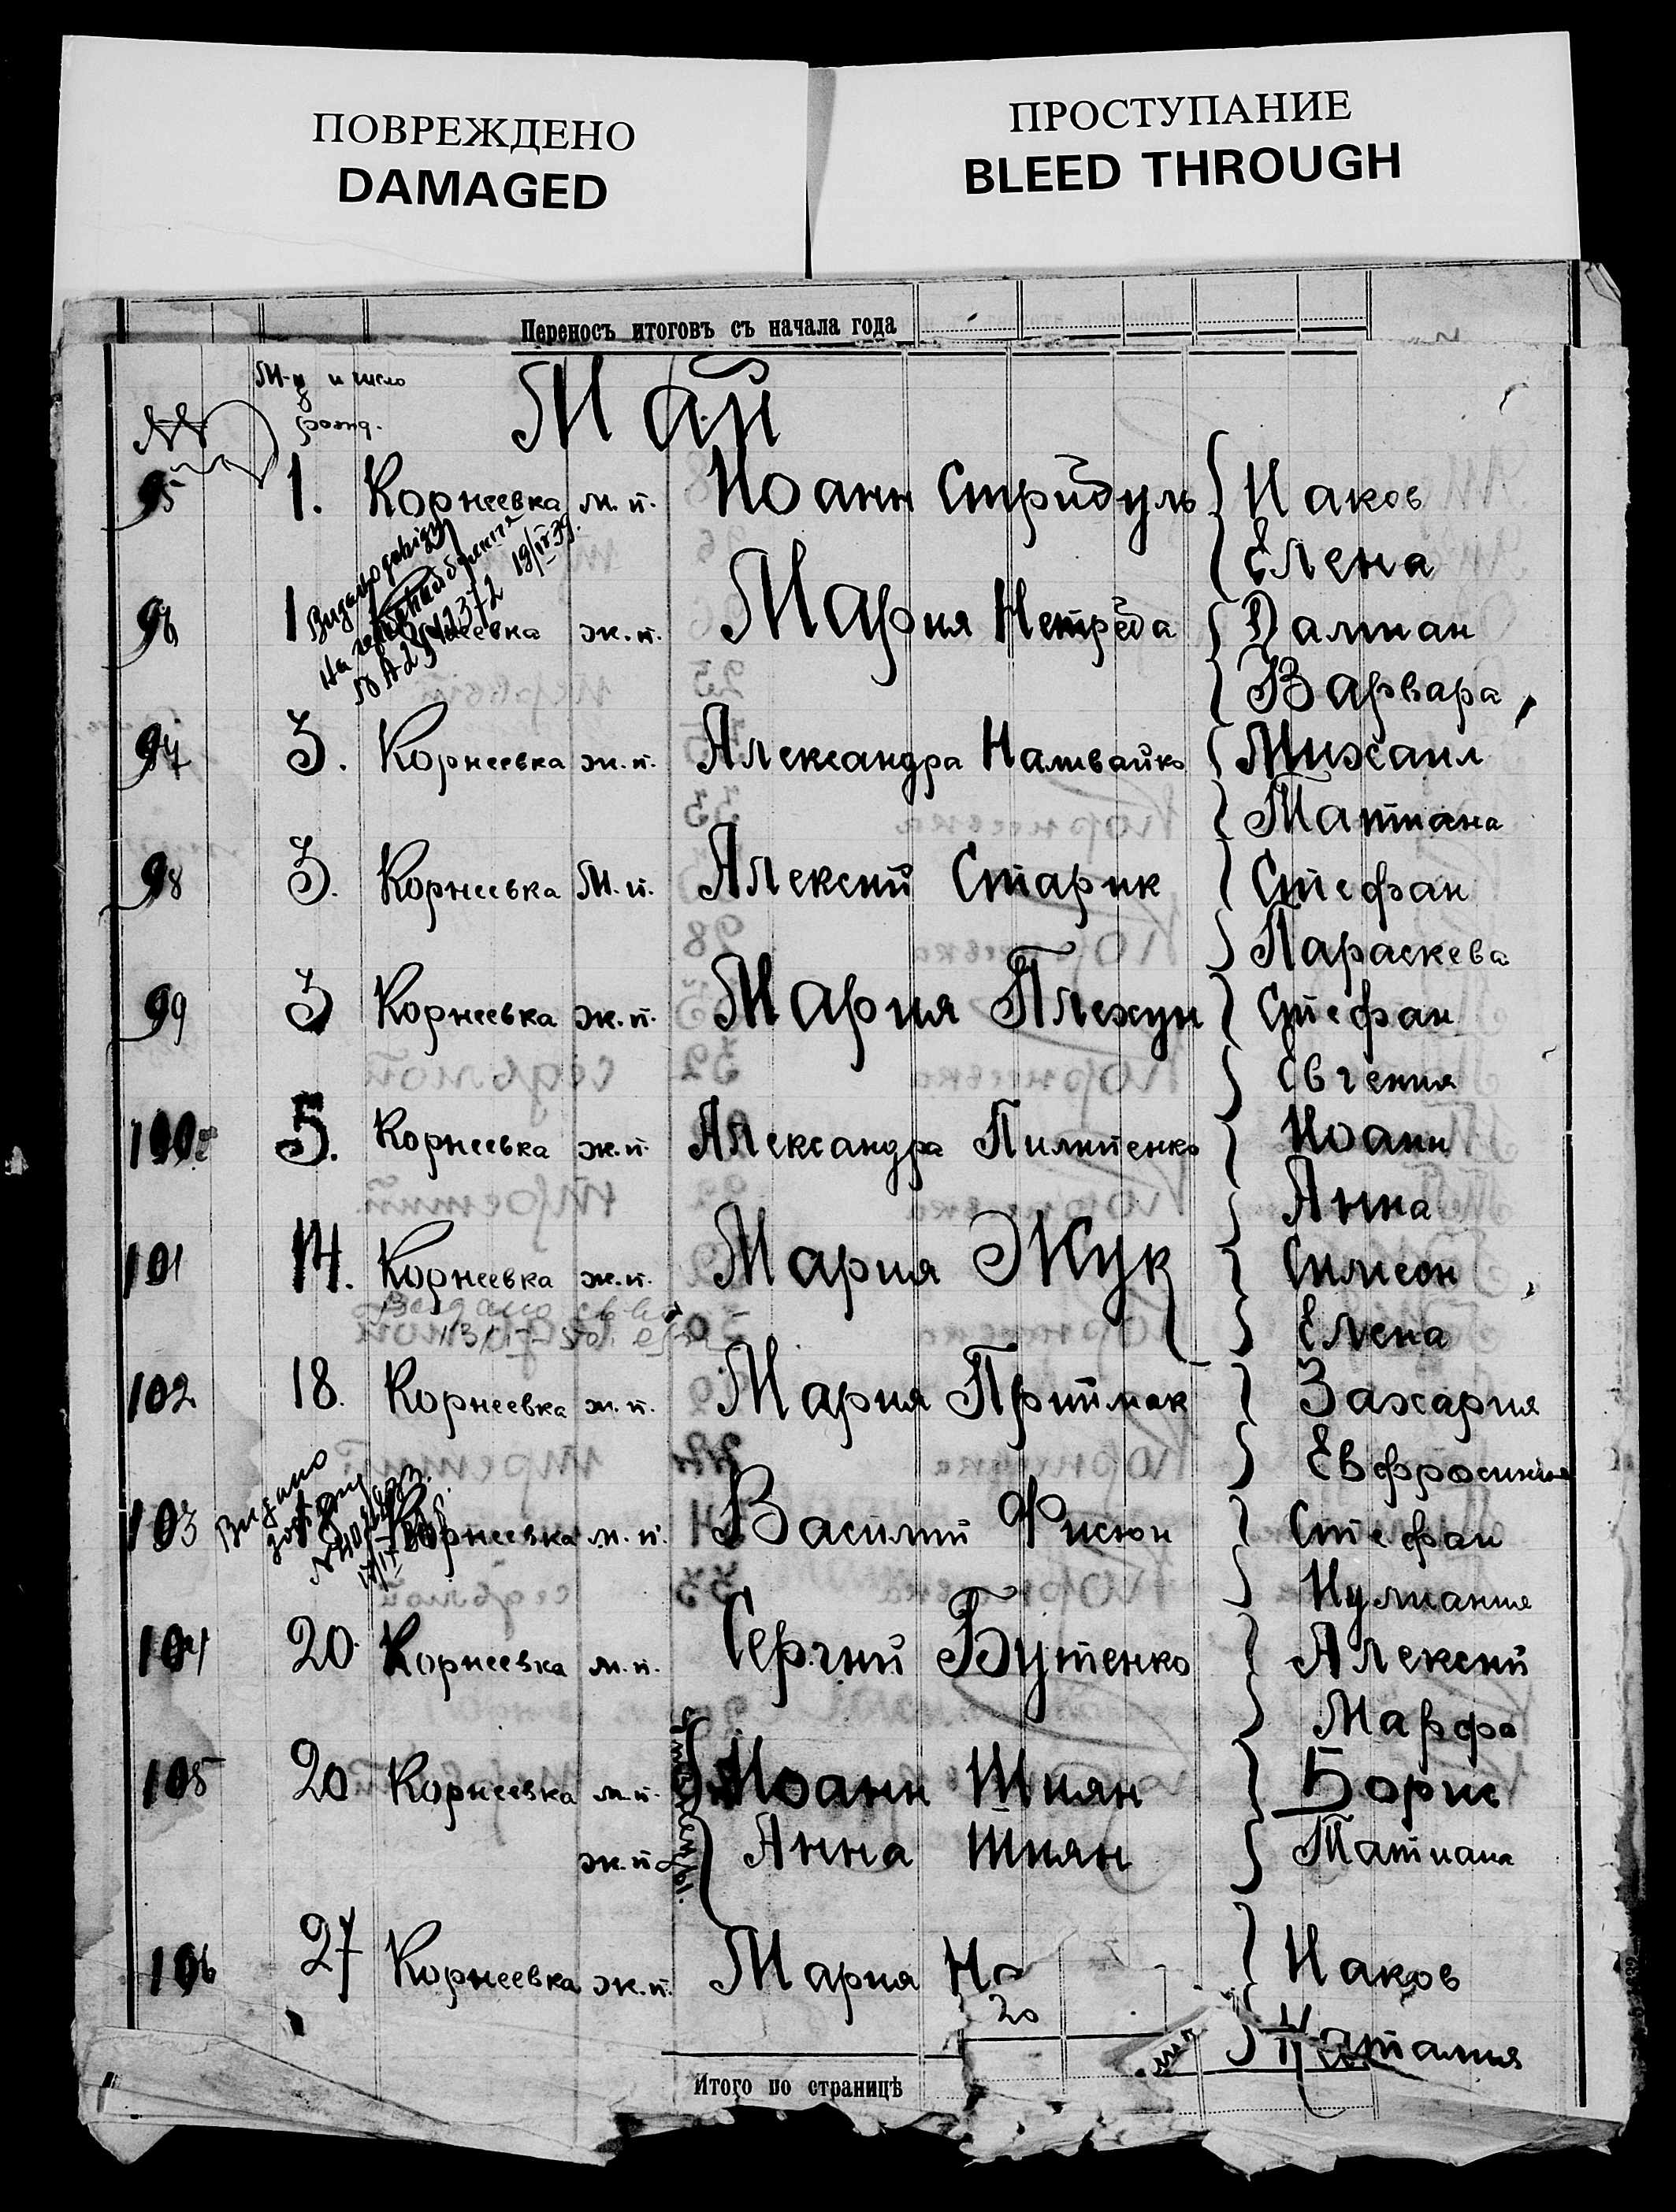 ПОВРЕЖДЕНО
DAMAGED
ПРОСТУПАНИЕ
BLEED THROUGH
Переносъ итоговъ съ начала года
М-ц и число
рожд.
Май
95 1. Корнеевка м.п. Иоанн Стридуль Иаков
Елена
96 1 ж.п. Мария Нетреба Далман
Варвара
97 3. Корнеевка ж.п. Александра Наливайко Михаил
Татиана
98 3. Корнеевка М.п. Алексий Старик Стефан
Параскева
99 3 Корнеевка ж.п. Мария Плехун Стефан
Евгения
100 5. Корнеевка ж.п. Александра Пилипенко Иоанн
Анна
101 14. Корнеевка ж.п. Мария Жук Симеон
Елена
102 18. Корнеевка ж.п. Мария Приймак Захария
Евфросиния
103 Видано Корнеевка м.п. Василий Фисюн Стефан
Иулиания
104 20. Корнеевка м.п. Сергий Бутенко Алексий
Марфа
105 20 Корнеевка м.п. Иоанн Шиян Борис
ж.п. Анна Шиян Татиана
106 27 Корнеевка ж.п. Мария Иаков
20
Наталия
Итого по страницѣ